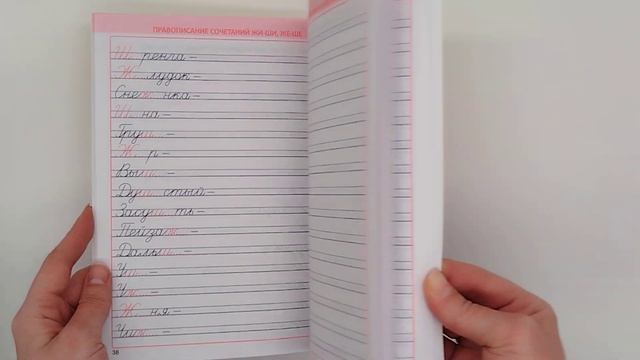 ПРАВОПИСАНИЕ СОЧЕТАНИЙ ЖИ-ШИ, ЖЕ-ШЕ
Ш...ренга –
Ж...лудок –
Снеж...нка –
Ш...на –
Груш... –
Ж...р –
Выш... –
Душ...стый –
Засуш...ть –
Пейзаж... –
Дальш... –
Уш... –
Уж... –
Ж...ня –
Чиж... –
38